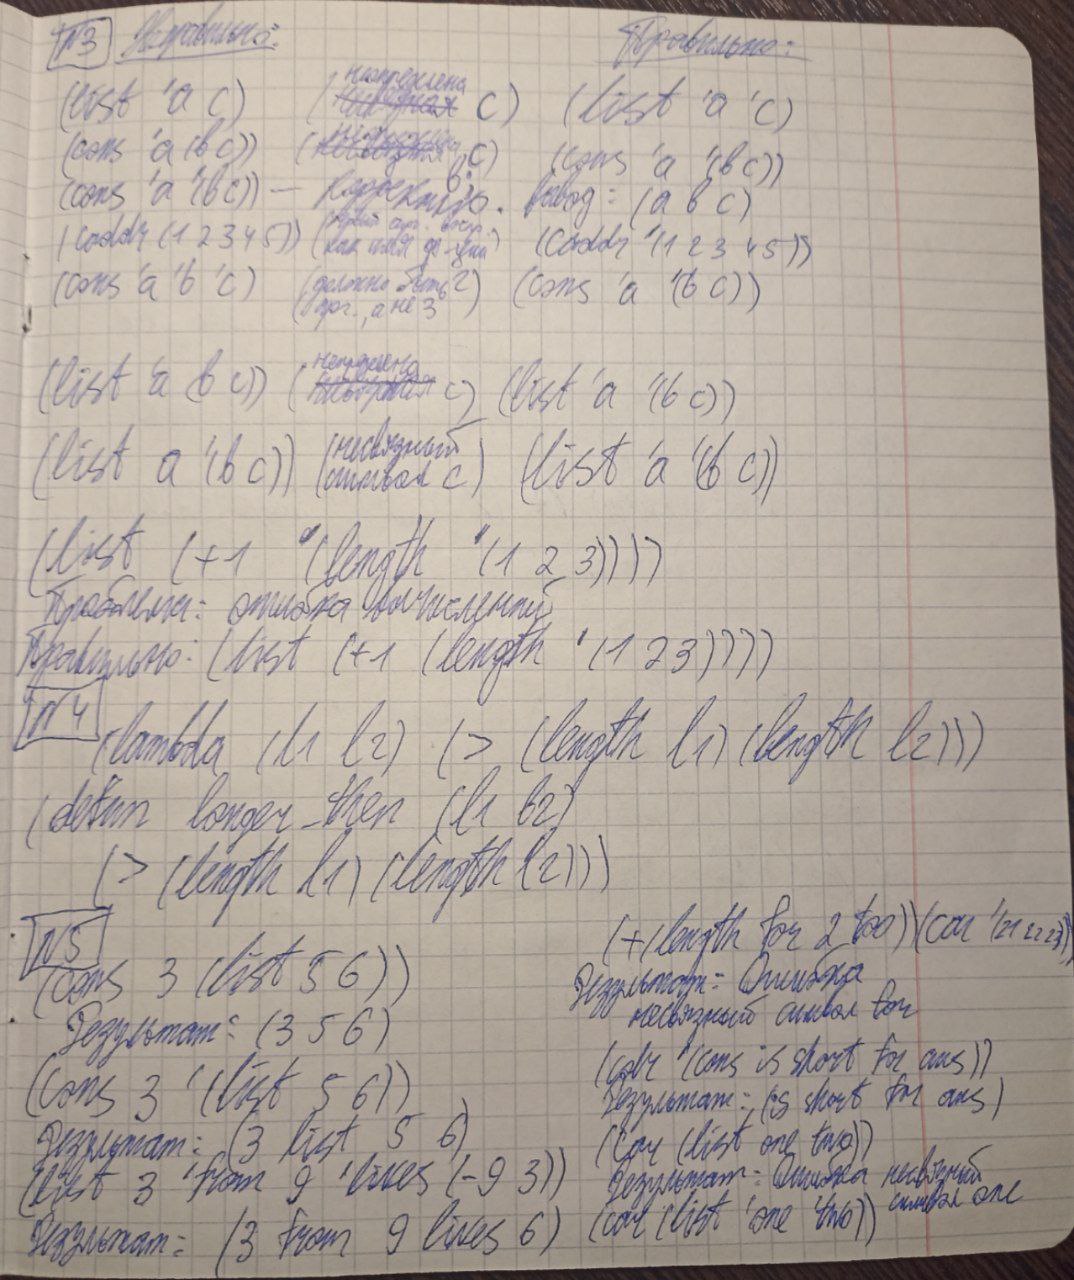 №3 Неправильно: Правильно:
(list 'a c) (неопределена c) (list 'a 'c)
(cons 'a (b c)) (c) (cons 'a '(b c))
(cons 'a '(b c)) — корректно. Вывод: (a b c)
(caddr (1 2 3 4 5)) (первый арг. воспр. как имя ф-ции) (caddr '(1 2 3 4 5))
(cons 'a 'b 'c) (должно быть 2 арг., а не 3) (cons 'a '(b c))
(list 'a (b c)) (неопределена c) (list 'a '(b c))
(list a '(b c)) (несвязный символ c) (list 'a '(b c))
(list (+1 '(length '(1 2 3))))
Проблема: ошибка вычислений
Правильно: (list (+1 (length '(1 2 3))))
№4
(lambda (l1 l2) (> (length l1) (length l2)))
(defun longer-then (l1 l2)
(> (length l1) (length l2)))
№5
(cons 3 (list 5 6))
Результат: (3 5 6)
(cons 3 '(list 5 6))
Результат: (3 list 5 6)
(list 3 'from 9 'lives (- 9 3))
Результат: (3 from 9 lives 6)
(+(length for 2 too))(car '(21 22 23))
Результат: Ошибка
несвязный символ for
(cdr '(cons is short for ans))
Результат: (is short for ans)
(car (list one two))
Результат: Ошибка несвязный
символ one
(car (list 'one 'two))